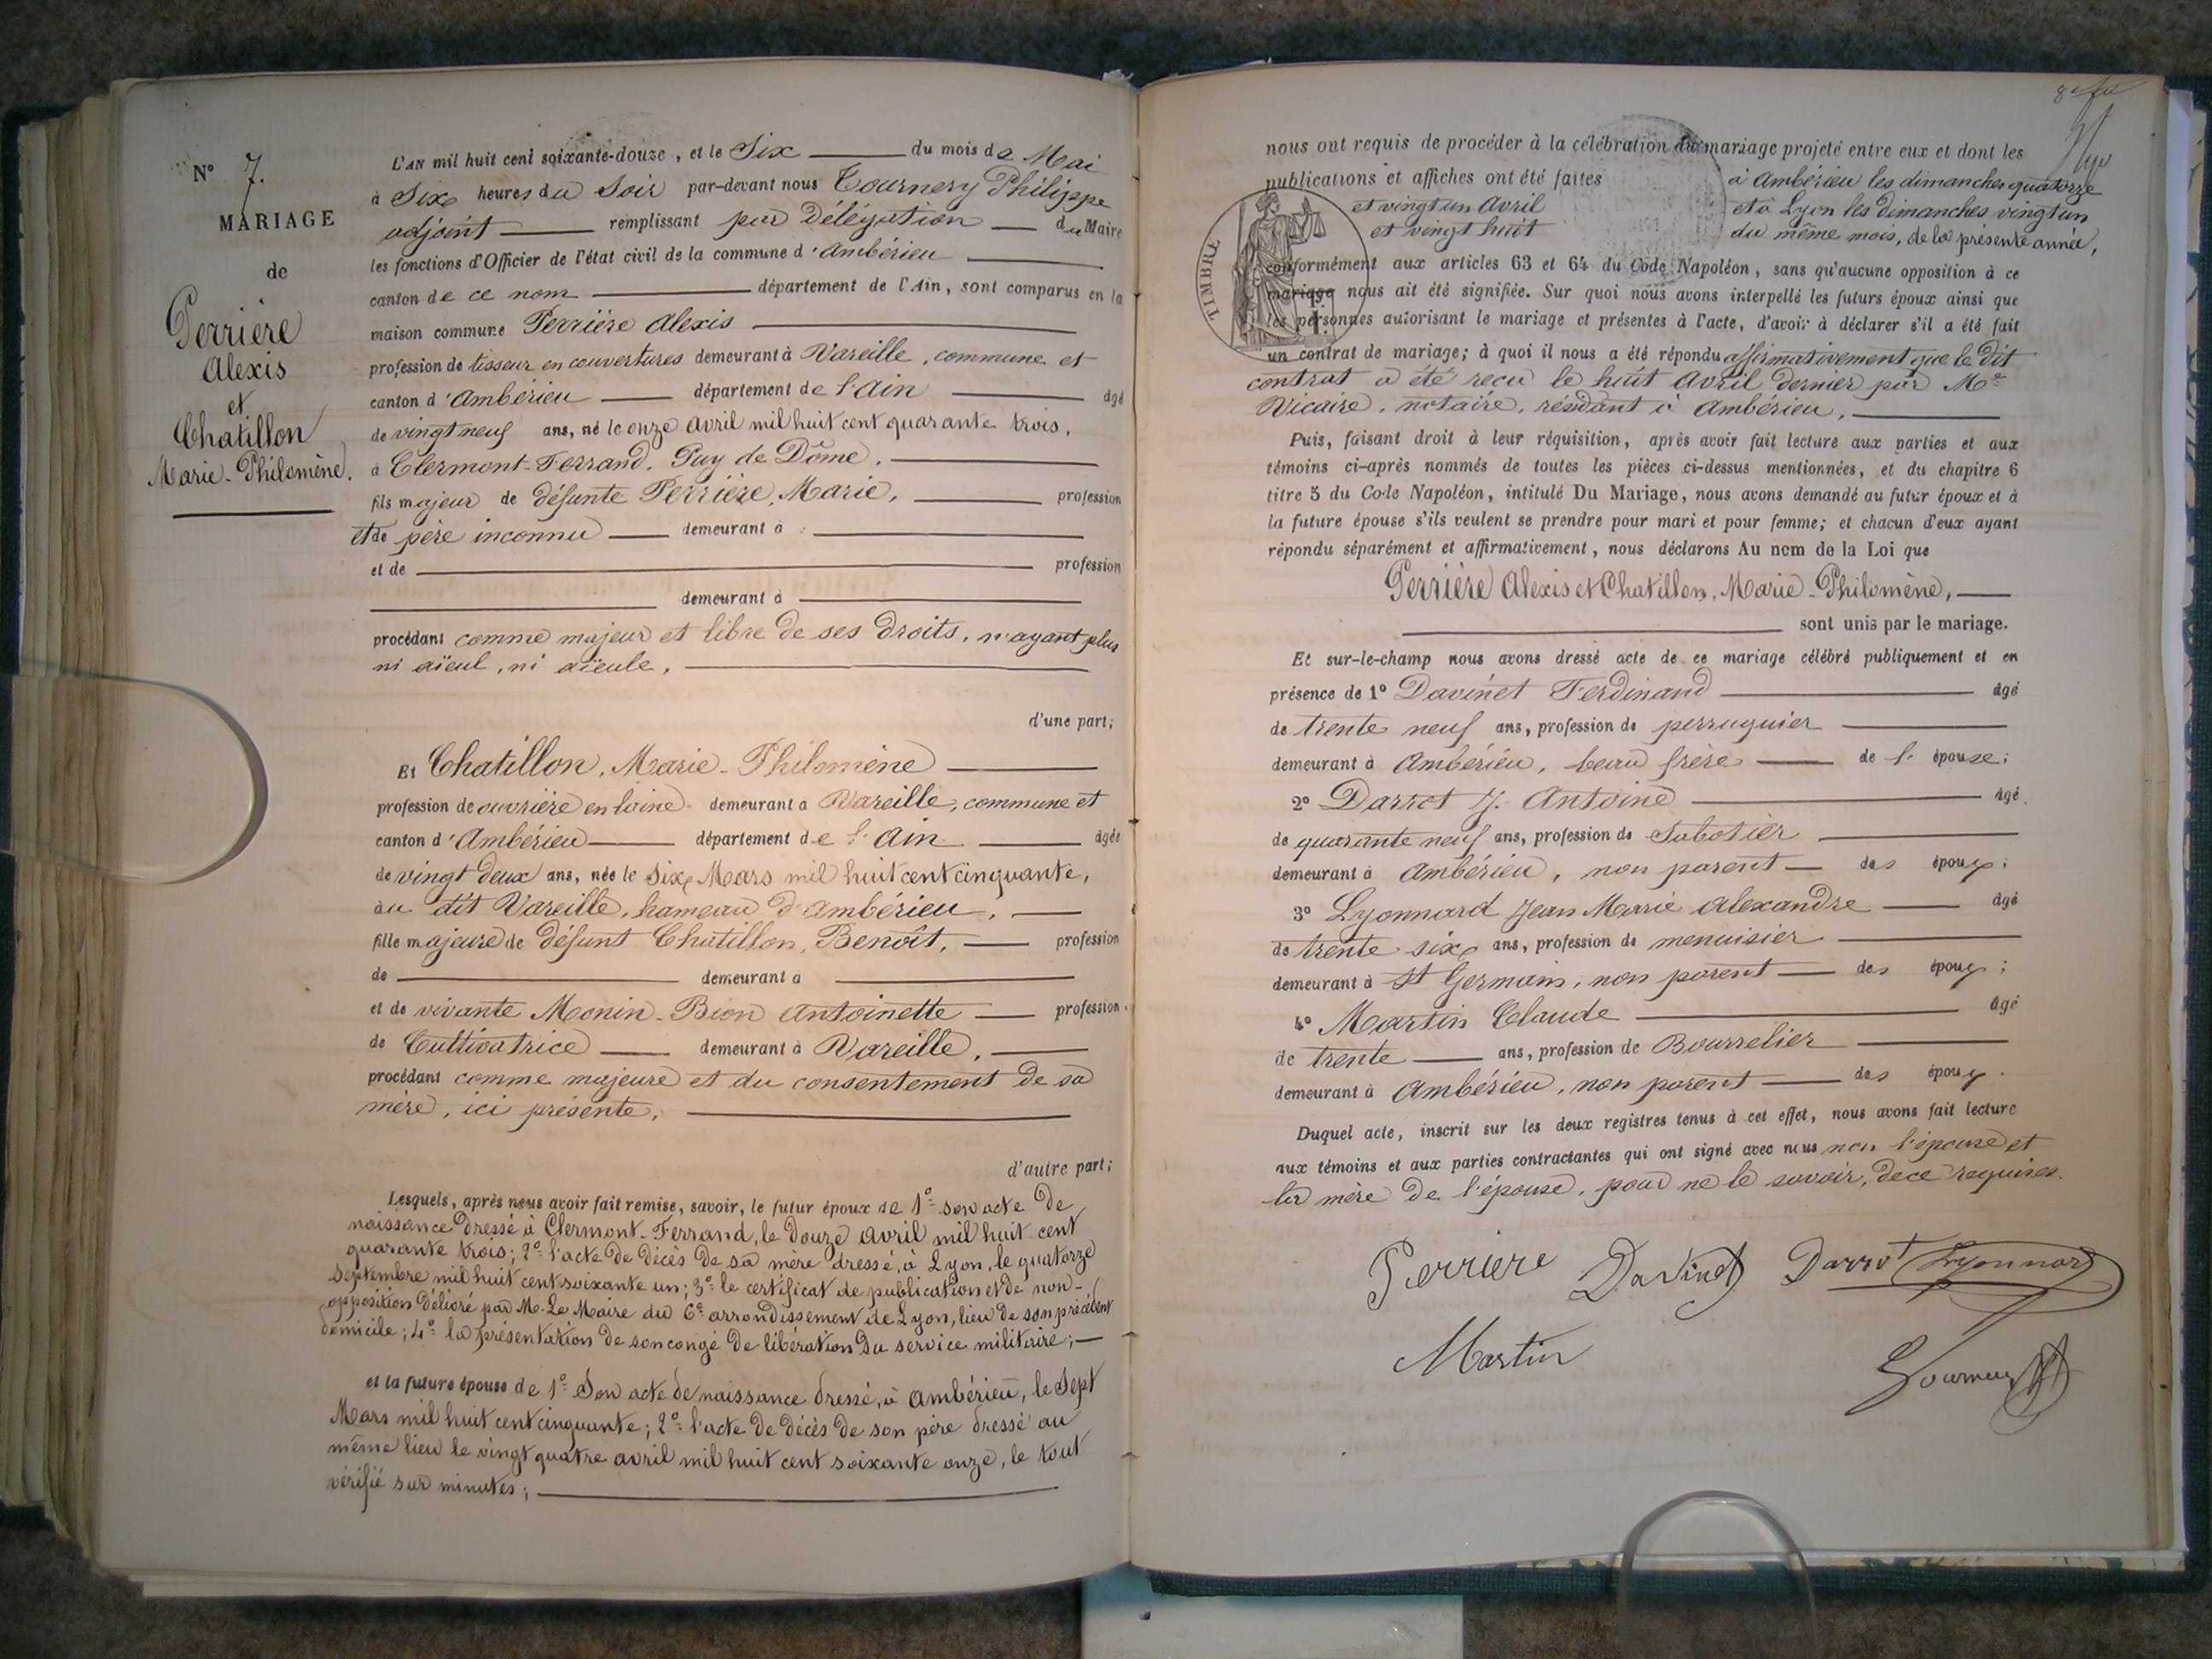 N° 7.
MARIAGE
de
Perrière
Alexis
et
Chatillon
Marie-Philomène.
L'AN mil huit cent soixante-douze, et le Six du mois de Mai
à Six heures du Soir par-devant nous Tournery Philippe
adjoint remplissant par délégation du Maire
les fonctions d'Officier de l'état civil de la commune d'Ambérieu
canton de ce nom département de l'Ain, sont comparus en la
maison commune Perrière Alexis
profession de tisseur en couvertures demeurant à Vareille, commune et
canton d'Ambérieu département de l'Ain âgé
de vingt neuf ans, né le onze Avril mil huit cent quarante trois,
à Clermont-Ferrand, Puy de Dôme,
fils majeur de défunte Perrière, Marie, profession
et de père inconnu demeurant à
et de profession
demeurant à
procédant comme majeur et libre de ses droits, n'ayant plus
ni aïeul, ni aïeule,
d'une part;
Et Chatillon, Marie-Philomène
profession de ouvrière en laine demeurant à Vareille, commune et
canton d'Ambérieu département de l'Ain âgée
de vingt deux ans, née le Six Mars mil huit cent cinquante,
au dit Vareille, hameau d'Ambérieu,
fille majeure de défunt Chatillon, Benoît, profession
de demeurant à
et de vivante Monin-Bion Antoinette profession
de Cultivatrice demeurant à Vareille,
procédant comme majeure et du consentement de sa
mère, ici présente,
d'autre part;
Lesquels, après nous avoir fait remise, savoir, le futur époux de 1° son acte de
naissance dressé à Clermont-Ferrand, le douze Avril mil huit cent
quarante trois; 2° l'acte de décès de sa mère dressé, à Lyon, le quatorze
septembre mil huit cent soixante un; 3° le certificat de publication et de non-
opposition délivré par M. Le Maire du 6e arrondissement de Lyon, lieu de son précédent
domicile; 4° la présentation de son congé de libération du service militaire;
et la future épouse de 1° Son acte de naissance dressé, à Ambérieu, le Sept
Mars mil huit cent cinquante; 2° l'acte de décès de son père dressé au
même lieu le vingt quatre avril mil huit cent soixante onze, le tout
vérifié sur minutes;
nous ont requis de procéder à la célébration du mariage projeté entre eux et dont les
publications et affiches ont été faites à Ambérieu les dimanches quatorze
et vingt un Avril et à Lyon les dimanches vingt un
et vingt huit du même mois, de la présente année,
TIMBRE
conformément aux articles 63 et 64 du Code Napoléon, sans qu'aucune opposition à ce
mariage nous ait été signifiée. Sur quoi nous avons interpellé les futurs époux ainsi que
les personnes autorisant le mariage et présentes à l'acte, d'avoir à déclarer s'il a été fait
un contrat de mariage; à quoi il nous a été répondu affirmativement que le dit
contrat a été reçu le huit Avril dernier par Me
Vicaire, notaire, résidant à Ambérieu,
Puis, faisant droit à leur réquisition, après avoir fait lecture aux parties et aux
témoins ci-après nommés de toutes les pièces ci-dessus mentionnées, et du chapitre 6
titre 5 du Code Napoléon, intitulé Du Mariage, nous avons demandé au futur époux et à
la future épouse s'ils veulent se prendre pour mari et pour femme; et chacun d'eux ayant
répondu séparément et affirmativement, nous déclarons Au nom de la Loi que
Perrière Alexis et Chatillon, Marie-Philomène,
sont unis par le mariage.
Et sur-le-champ nous avons dressé acte de ce mariage célébré publiquement et en
présence de 1° Davinet Ferdinand âgé
de trente neuf ans, profession de perruquier
demeurant à Ambérieu, beau frère de l'épouse;
2° Darrot J. Antoine âgé
de quarante neuf ans, profession de Sabotier
demeurant à Ambérieu, non parent des époux;
3° Lyonnard Jean Marie Alexandre âgé
de trente six ans, profession de menuisier
demeurant à St Germain, non parent des époux;
4° Martin Claude âgé
de trente ans, profession de Bourrelier
demeurant à Ambérieu, non parent des époux.
Duquel acte, inscrit sur les deux registres tenus à cet effet, nous avons fait lecture
aux témoins et aux parties contractantes qui ont signé avec nous non l'épouse et
la mère de l'épouse, pour ne le savoir, de ce requises.
Perriere Davinet Darrot Lyonnard
Martin
Tournery